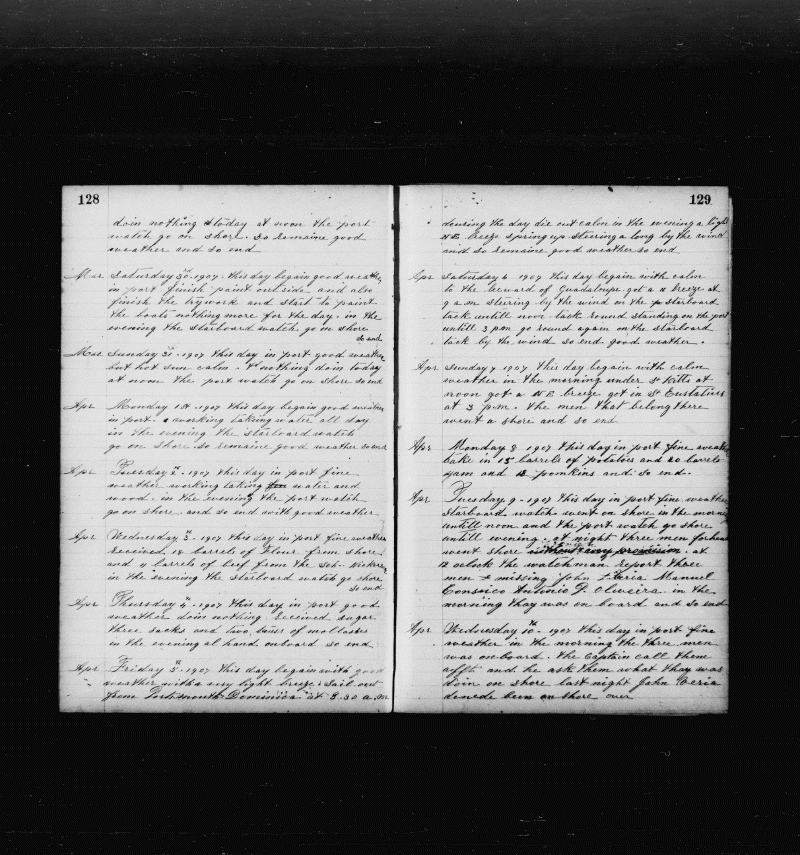 128
doin nothing today at noon the port
watch go on shore. So remaine good
weather and so end
Mar Saturday 30. 1907. this day begain good weather
in port finish paint outside and also
finish the trywork and start to paint
the boats nothing more for the day. in the
evening the starboard watch go on shore
so end
Mar Sunday 31. 1907 this day in port good weather
but hot sun calm. nothing doin today
at noon the port watch go on shore so end
Apr Monday 1st. 1907 this day begain good weather
in port. working taking water all day
in the evening the starboard watch
go on shore So remaine good weather so end
Apr Tuesday 2. 1907 this day in port fine
weather working taking water and
wood. in the evening the port watch
go on shore. and so end with good weather
Apr Wednesday 3. 1907 this day in port fine weather
Received 18 barrels of Flour from shore
and 4 barrels of beef from the Sch.
in the evening the starboard watch go shore
so end
Apr Thursday 4. 1907 this day in port good
weather doin nothing. Received sugar.
three sacks and two of molasses
in the evening al hand. onboard so end
Apr Friday 5. 1907 this day begain with good
weather with a very light breeze. Sail out
from Portsmouth Dominica at 8.30 a.m
129
during the day die out calm in the evening a light
NE breeze spring up steering along by the wind
and so remaine good weather so end
Apr Saturday 6 1907 this day begain with calm
to the leward of Guadaloupe got a breeze at
9 a.m steering by the wind on the starboard
tack untill noon tack round standing on the port
untill 3 p.m. go round again on the starboard
tack by the wind so end. good weather.
Apr Sunday 7 1907 this day begain with calm
weather in the morning under St Kitts at
noon got a NE. breeze got in St Eustatius
at 3 p.m. the men that belong there
went a shore and so end
Apr Monday 8 1907 this day in port fine weather
take in 15 barrels of potatoes and 20 barrels
yam and pomkins and so end.
Apr Tuesday 9. 1907 this day in port fine weather
starboard watch went on shore in the morning
untill noon and the port watch go shore
untill evening. at night three men forhead
went shore without any promision. at
12 oclock the watchman report three
men missing John Manuel
Antonio P. Oliveira. in the
morning thay was on board and so end
Apr Wednesday 10. 1907 this day in port fine
weather in the morning the three men
was onboard. the Captain call them
afft and he ask them what thay was
doin on shore last night John
been on shore over